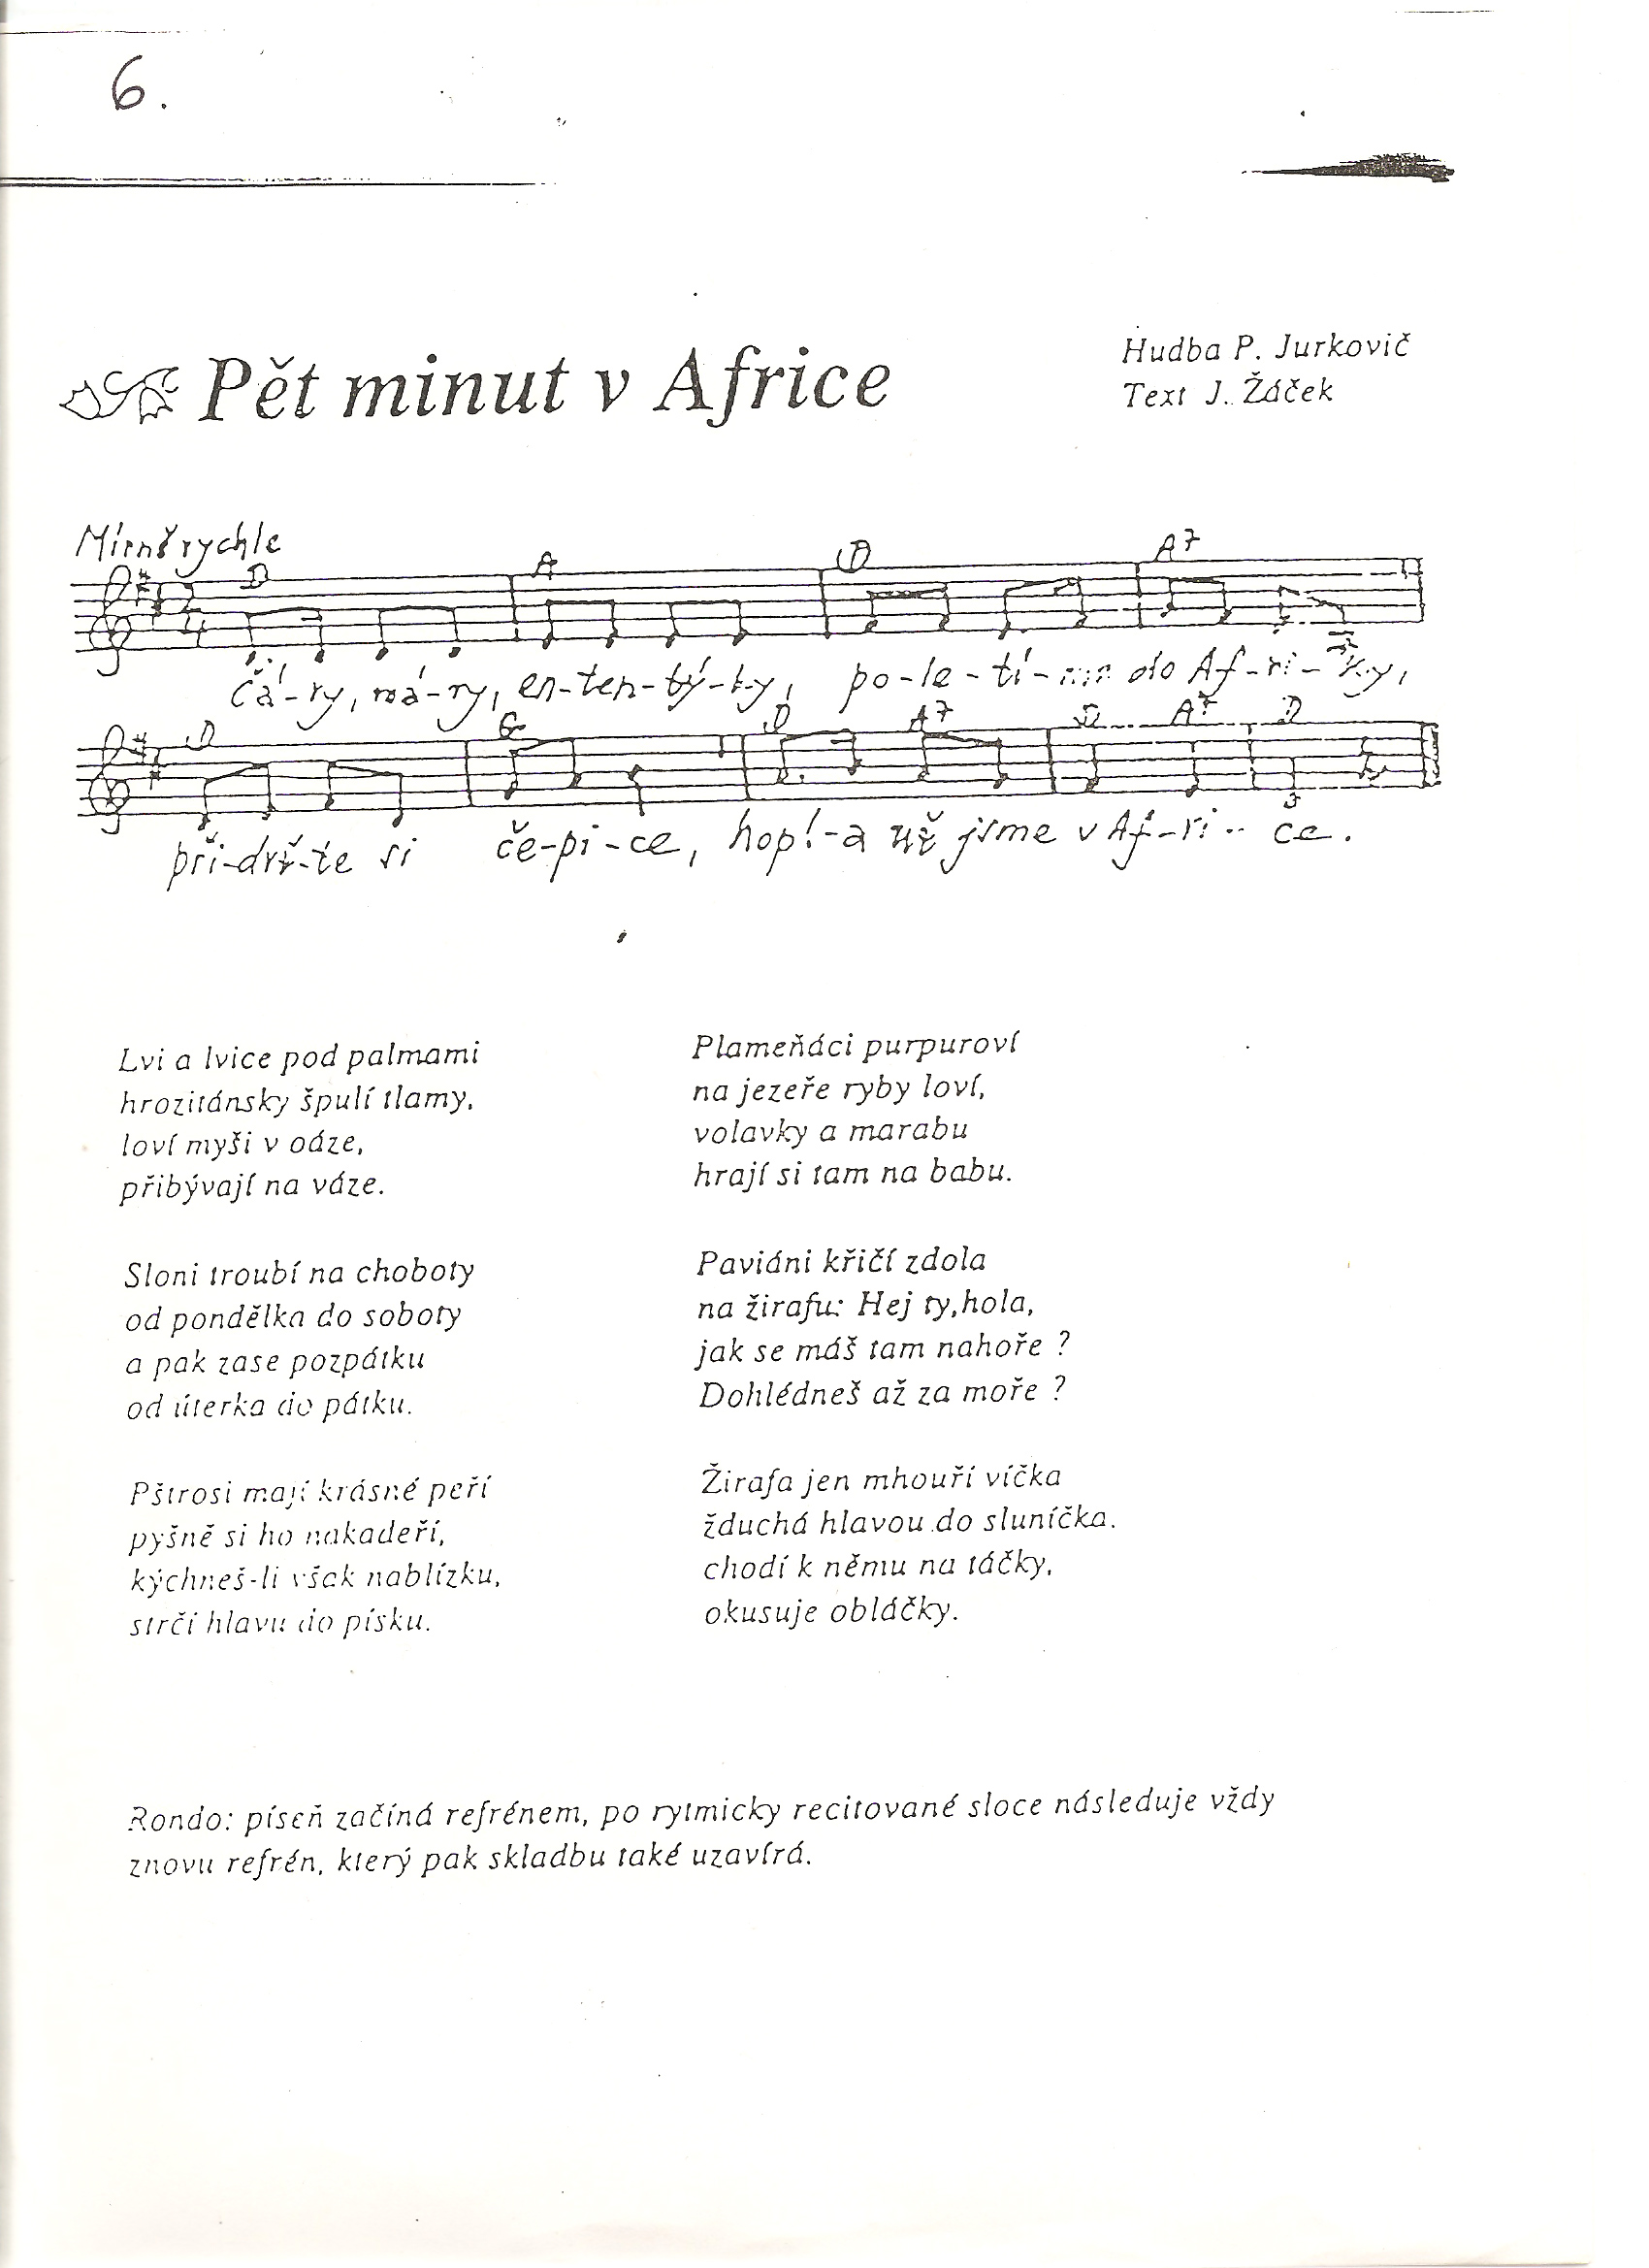 6.
Pět minut v Africe
Hudba P. Jurkovič
Text J. Žáček
Mírně rychle
D A D A7
Čá-ry, má-ry, en-ten-tý-ky, po-le-tí-me do Af-ri-ky,
D G D A7 D A7 D
při-drž-te si če-pi-ce, hop!-a už jsme v Af-ri-ce.
Lvi a lvice pod palmami
hrozitánsky špulí tlamy,
loví myši v oáze,
přibývají na váze.
Sloni troubí na choboty
od pondělka do soboty
a pak zase pozpátku
od úterka do pátku.
Pštrosi mají krásné peří
pyšně si ho nakadeří,
kýchneš-li však nablízku,
strčí hlavu do písku.
Plameňáci purpuroví
na jezeře ryby loví,
volavky a marabu
hrají si tam na babu.
Paviáni křičí zdola
na žirafu: Hej ty,hola,
jak se máš tam nahoře ?
Dohlédneš až za moře ?
Žirafa jen mhouří víčka
žduchá hlavou do sluníčka.
chodí k němu na táčky,
okusuje obláčky.
Rondo: píseň začíná refrénem, po rytmicky recitované sloce následuje vždy
znovu refrén, který pak skladbu také uzavírá.